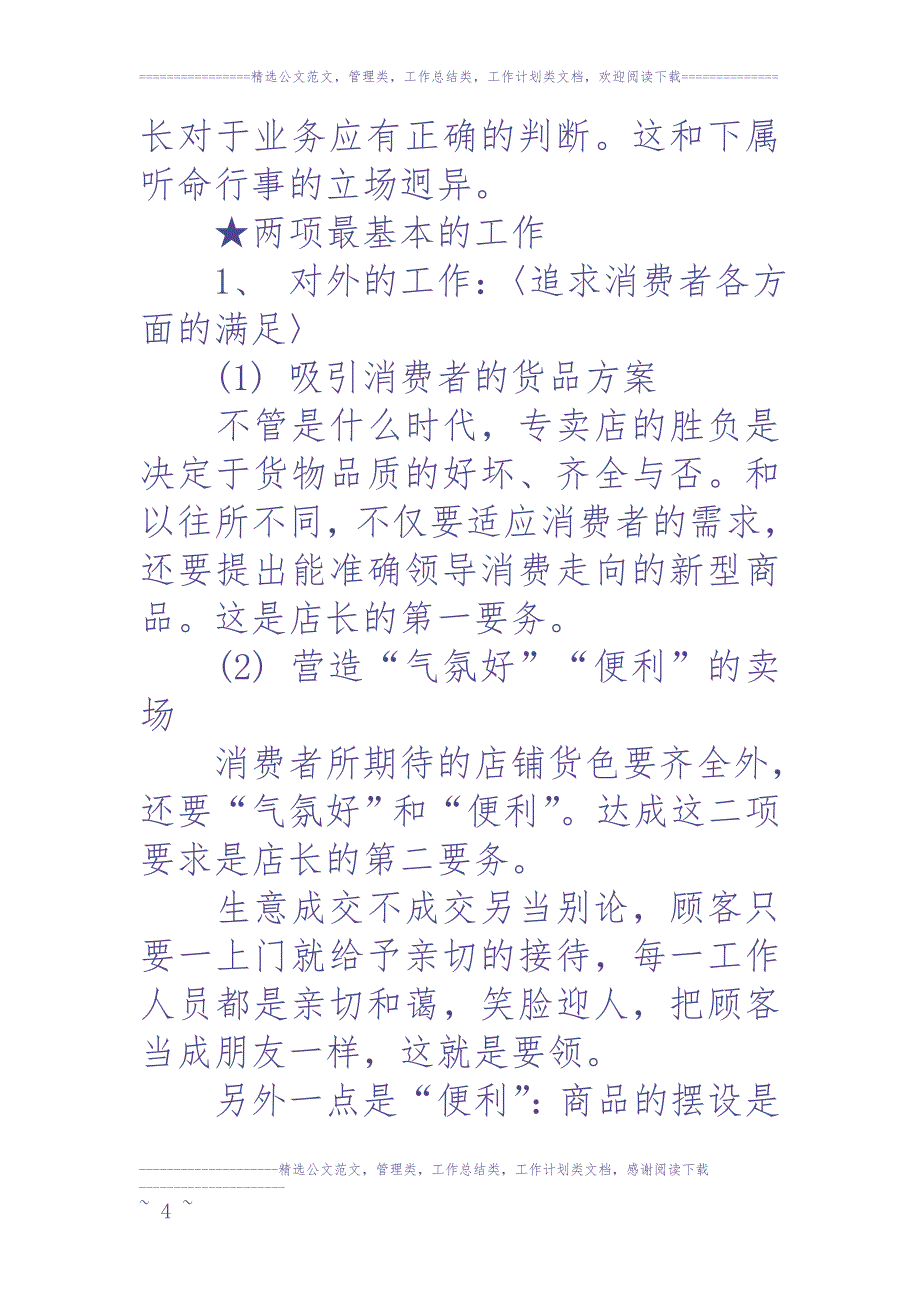 ================精选公文范文，管理类，工作总结类，工作计划类文档，欢迎阅读下载==============
长对于业务应有正确的判断。这和下属
听命行事的立场迥异。
★两项最基本的工作
1、 对外的工作：〈追求消费者各方
面的满足〉
(1) 吸引消费者的货品方案
不管是什么时代，专卖店的胜负是
决定于货物品质的好坏、齐全与否。和
以往所不同，不仅要适应消费者的需求，
还要提出能准确领导消费走向的新型商
品。这是店长的第一要务。
(2) 营造“气氛好”“便利”的卖
场
消费者所期待的店铺货色要齐全外，
还要“气氛好”和“便利”。达成这二项
要求是店长的第二要务。
生意成交不成交另当别论，顾客只
要一上门就给予亲切的接待，每一工作
人员都是亲切和蔼，笑脸迎人，把顾客
当成朋友一样，这就是要领。
另外一点是“便利”：商品的摆设是
--------------------精选公文范文，管理类，工作总结类，工作计划类文档，感谢阅读下载
---------------------
~ 4 ~